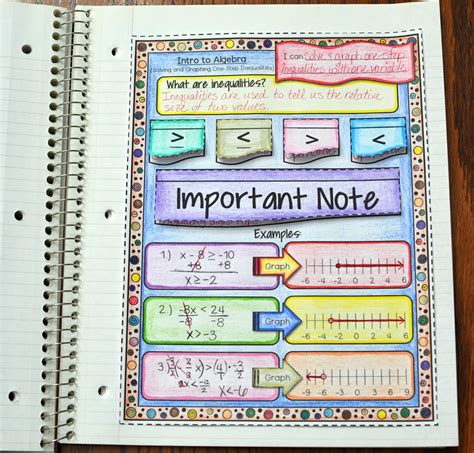 Intro to Algebra
(Solving and Graphing One-Step Inequalities)
I can solve & graph one-step
inequalities with one variable
What are inequalities?
Inequalities are used to tell us the relative
size of two values.
≥ ≤ > <
Important Note
Examples:
1.) x - 8 ≥ -10
+8 +8
x ≥ -2
Graph
-6 -4 -2 0 2 4 6
2.) -8x < 24
-8 -8
x > -3
Graph
-6 -4 -2 0 2 4 6
3.)
x < -6
Graph
-9 -6 -3 0 3 6 9